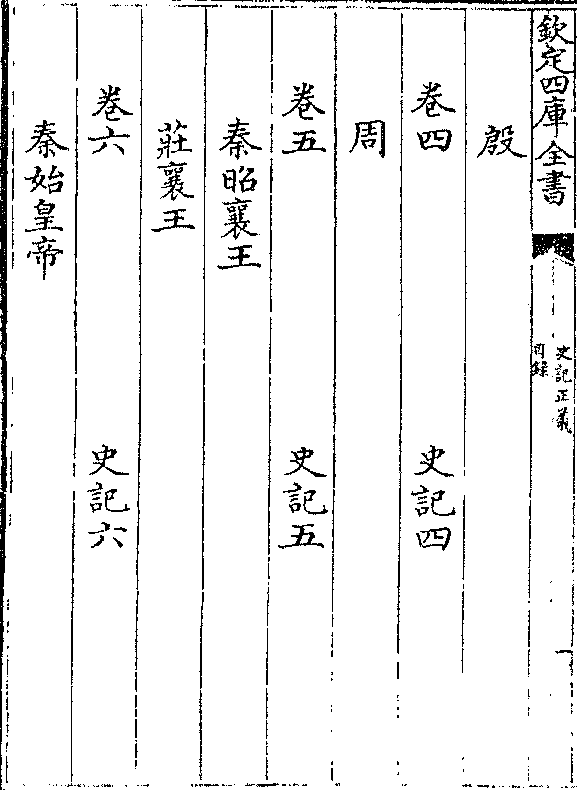 欽定四庫全書
史記正義
目錄
一
殷
卷四 史記四
周
卷五 史記五
秦昭襄王
莊襄王
卷六 史記六
秦始皇帝